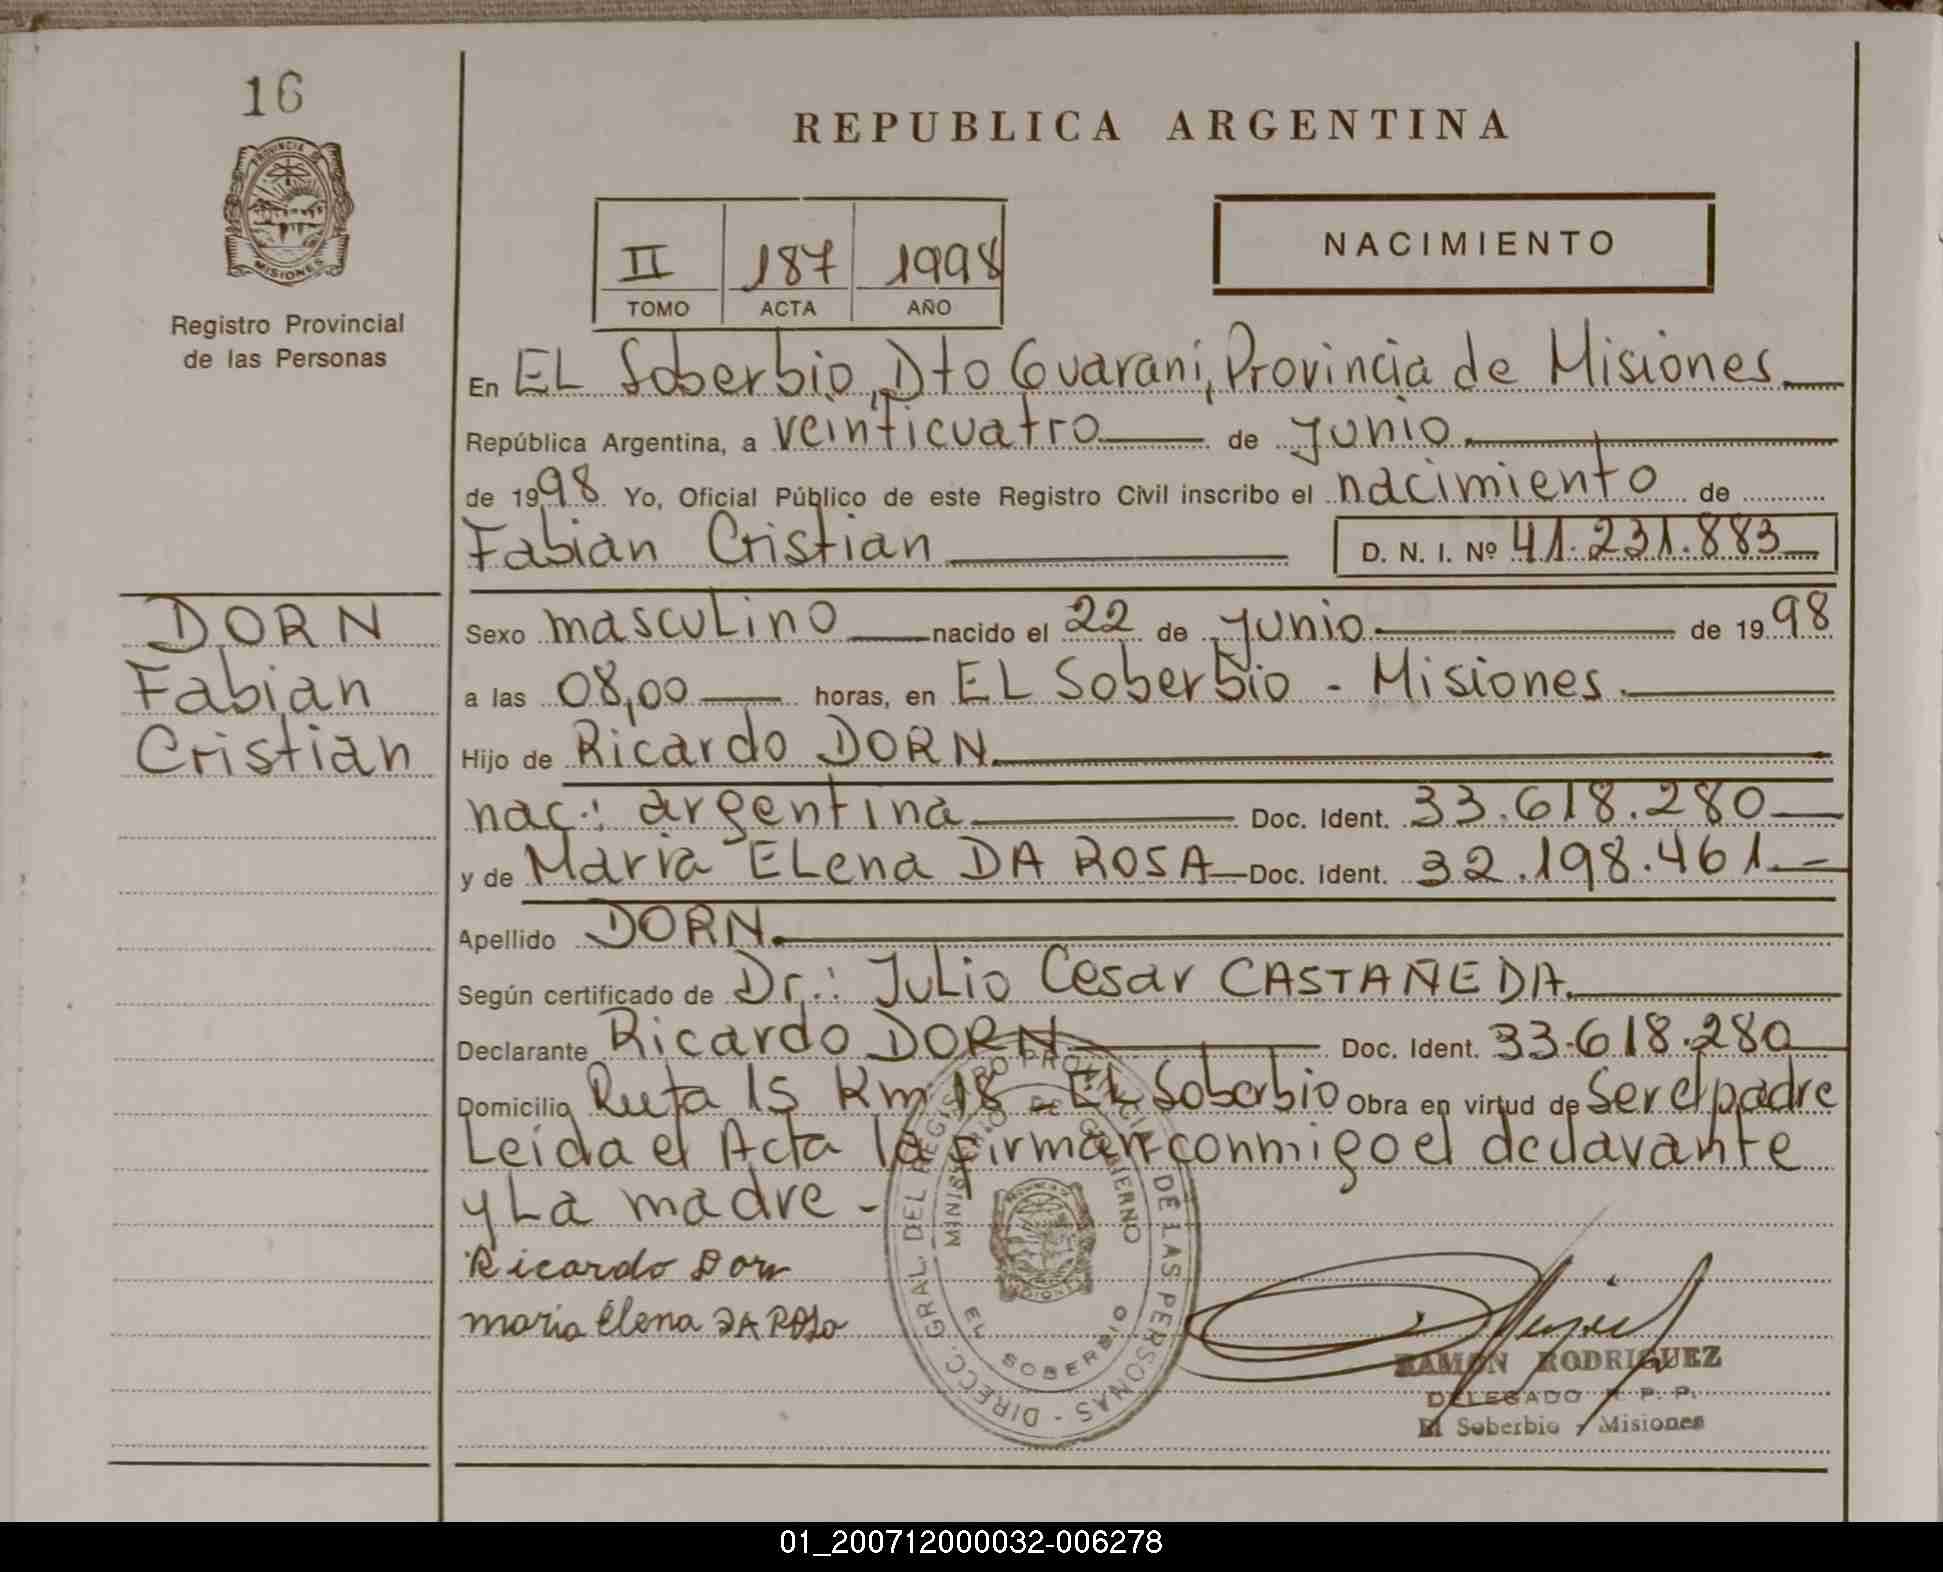 16
PROVINCIA DE
MISIONES
Registro Provincial
de las Personas
REPUBLICA ARGENTINA
II 187 1998
TOMO ACTA AÑO
NACIMIENTO
En EL Soberbio, Dto Guarani, Provincia de Misiones
República Argentina, a veinticuatro de junio
de 1998 Yo, Oficial Público de este Registro Civil inscribo el nacimiento de
Fabian Cristian D. N. I. Nº 41.231.883
DORN
Fabian
Cristian
Sexo masculino nacido el 22 de junio de 1998
a las 08,00 horas, en EL Soberbio - Misiones.
Hijo de Ricardo DORN.
nac.: argentina Doc. Ident. 33.618.280
y de Maria ELena DA ROSA Doc. Ident. 32.198.461.-
Apellido DORN.
Según certificado de Dr.: Julio Cesar CASTAÑEDA.
Declarante Ricardo DORN Doc. Ident. 33.618.280
Domicilio Ruta 15 Km 18 - EL Soberbio Obra en virtud de Ser el padre
Leida el Acta la firman conmigo el declarante
y La madre -
Ricardo Dorn
maria Elena DA ROSa
DIRECC. GRAL. DEL REGISTRO PROVINCIAL DE LAS PERSONAS -
MINISTERIO DE GOBIERNO
EL SOBERBIO
RAMON RODRIGUEZ
DELEGADO R. P. P.
El Soberbio - Misiones
01_200712000032-006278